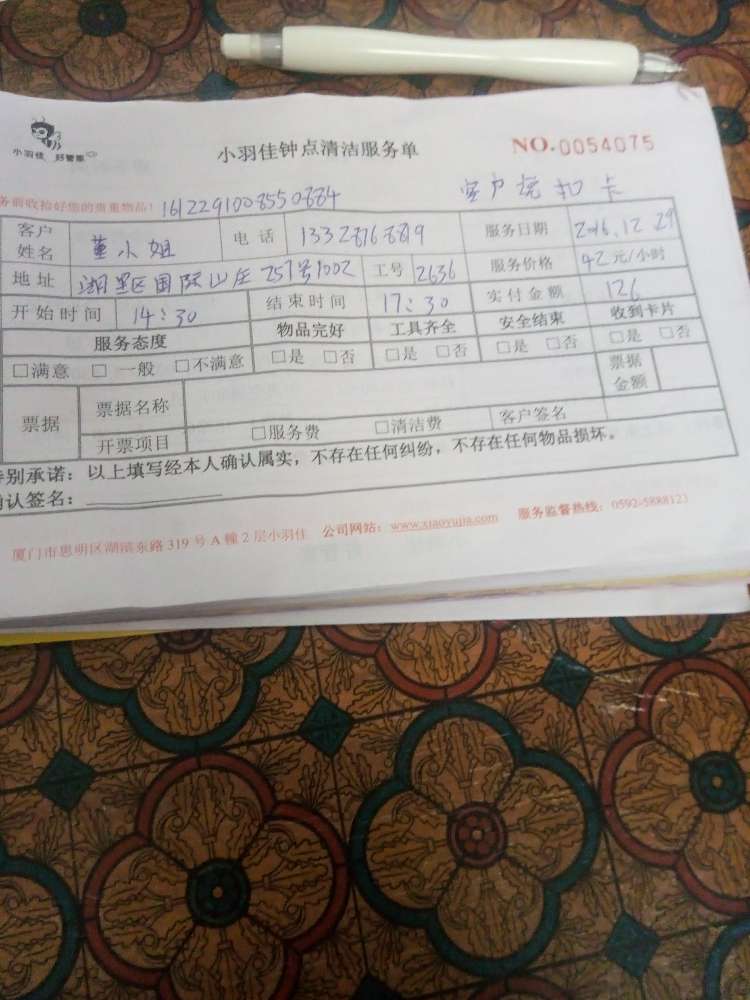 小羽佳 好管家
小羽佳钟点清洁服务单
NO.0054075
务前收拾好您的贵重物品! 1612291008550884
客户说扣卡
客户姓名 董小姐 电话 13328768819 服务日期 2016.12.29
地址 湖里区国际山庄257号1002 工号 2636 服务价格 42元/小时
开始时间 14:30 结束时间 17:30 实付金额 126
服务态度 物品完好 工具齐全 安全结束 收到卡片
□满意 □一般 □不满意 □是 □否 □是 □否 □是 □否 □是 □否
票据 票据名称 票据金额
开票项目 □服务费 □清洁费 客户签名
特别承诺:以上填写经本人确认属实,不存在任何纠纷,不存在任何物品损坏。
确认签名:
厦门市思明区湖滨东路319号A幢2层小羽佳 公司网站:www.xiaoyujia.com 服务监督热线:0592-5888123